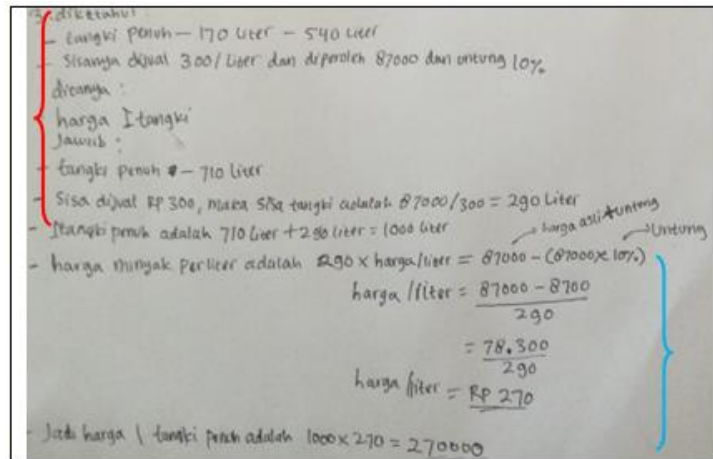 3. diketahui:
- tangki penuh - 170 liter - 540 liter
- Sisanya dijual 300/liter dan diperoleh 87000 dan untung 10%
ditanya:
harga I tangki
Jawab:
- tangki penuh - 710 liter
- Sisa dijual RP 300, maka sisa tangki adalah 87000/300 = 290 liter
- I tangki penuh adalah 710 liter + 290 liter = 1000 liter
harga asli + untung
Untung
- harga minyak perliter adalah 290 x harga/liter = 87000 - (87000 x 10%)
harga /liter = 87000 - 8700
290
= 78.300
290
harga /liter = RP 270
- Jadi harga 1 tangki penuh adalah 1000 x 270 = 270000